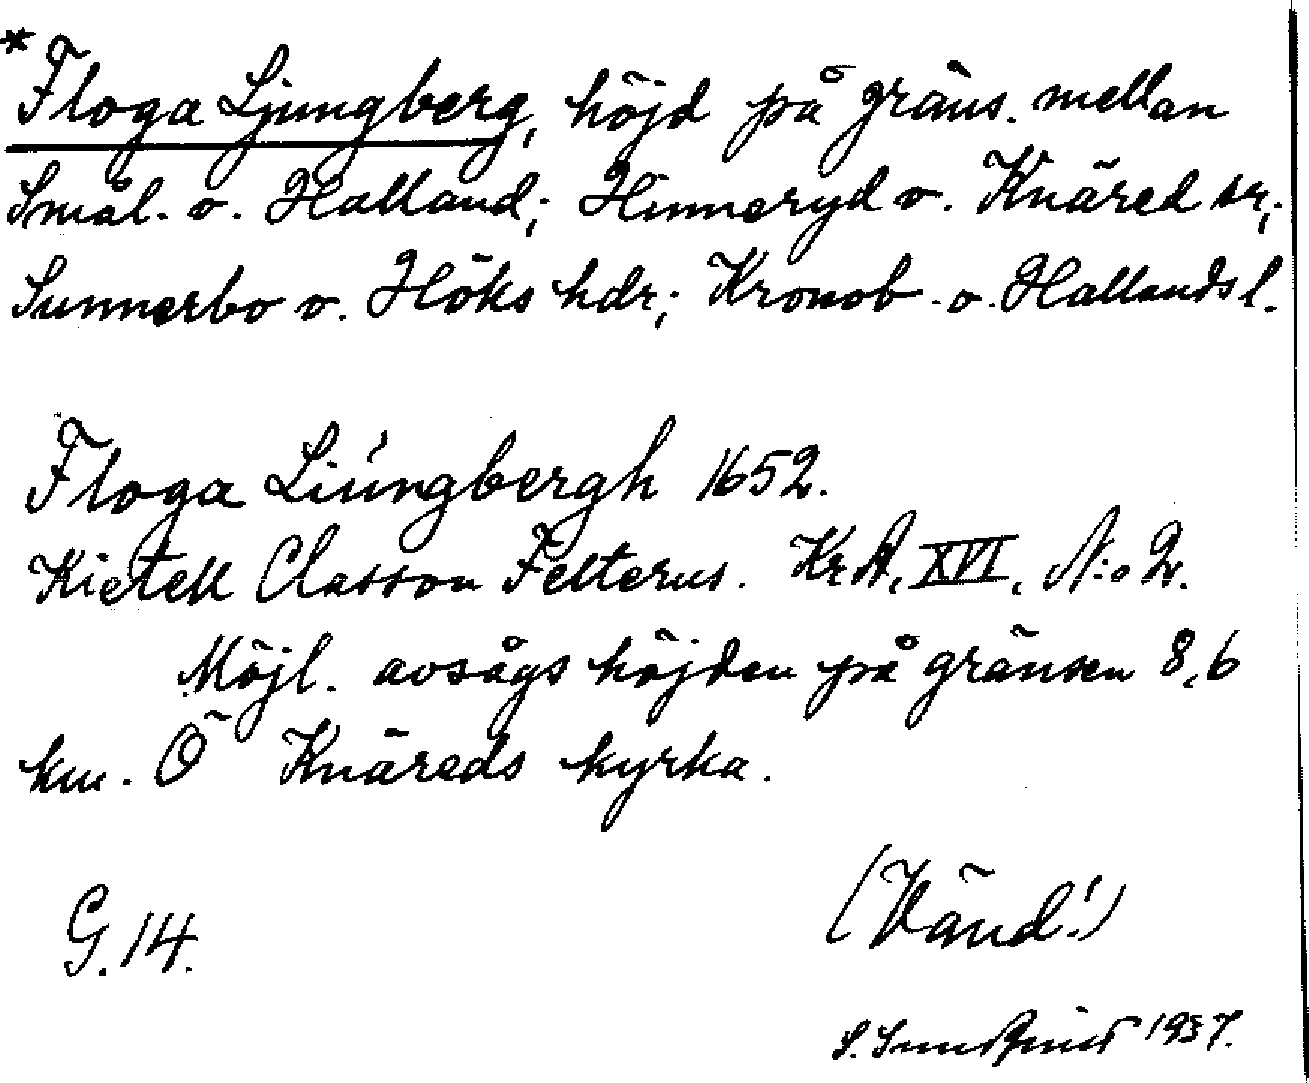 *Floga Ljungberg, höjd på gräns. mellan
Smål. o. Halland; Hinneryd o. Knäred sr,;
Sunnerbo o. Höks hdr,; Kronob. o. Hallands l.
Floga Liúngbergh 1652.
Kietell Classon Felterus. KrA, XVI, N:o 2.
Möjl. avsågs höjden på gränsen 8,6
km. Ö Knäreds kyrka.
(Vänd!)
G. 14.
S. Sundqvist 1937.